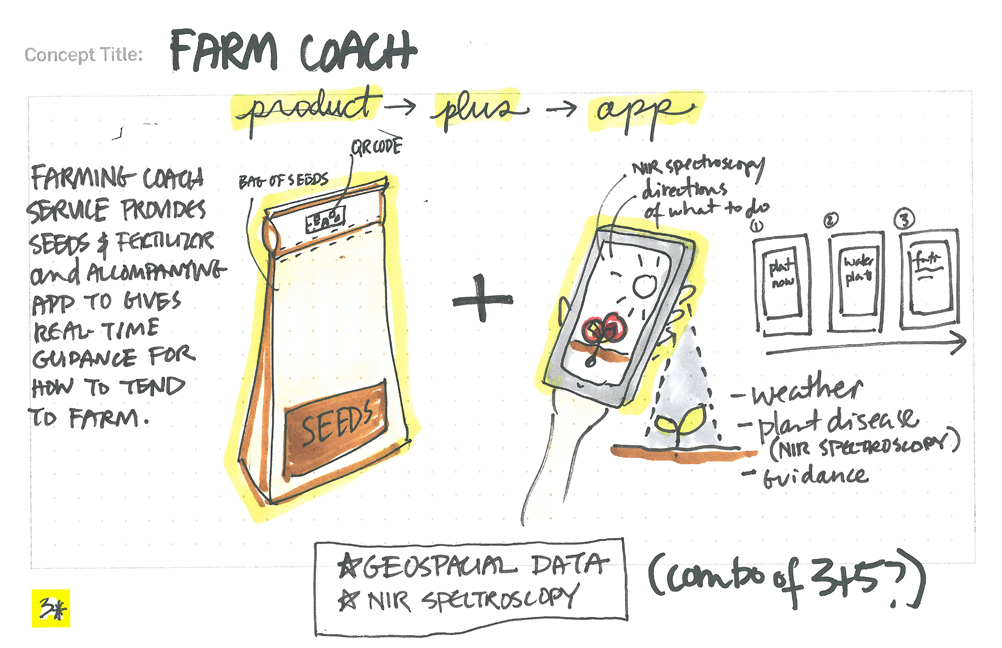 Concept Title: FARM COACH
product → plus → app
FARMING COACH
SERVICE PROVIDES
SEEDS & FERTILIZOR
and ACCOMPANYING
APP TO GIVES
REAL-TIME
GUIDANCE FOR
HOW TO TEND
TO FARM.
BAG OF SEEDS
QR CODE
SEEDS
+
NIR SPECTROSCOPY
directions
of what to do
1
plant
now
2
water
plants
3
- weather
- plant disease
(NIR SPECTROSCOPY)
- Guidance
☆ GEOSPACIAL DATA
☆ NIR SPECTROSCOPY
(combo of 3+5?)
3*